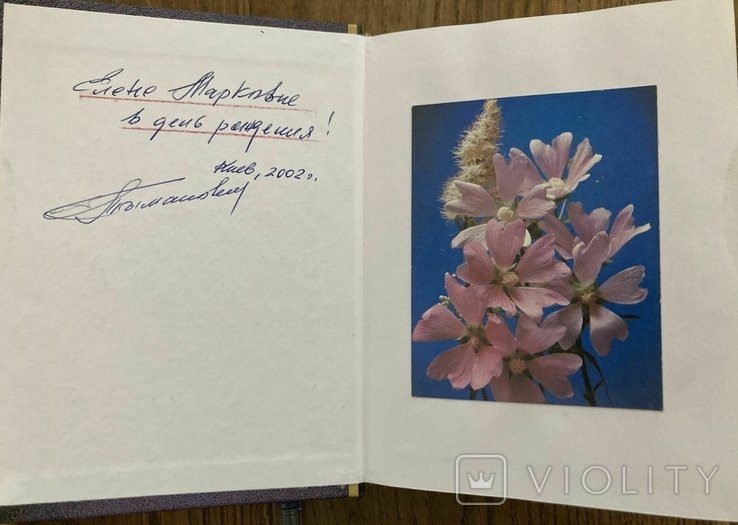 Елене Марковне
в день рождения!
Киев, 2002 г.
VIOLITY